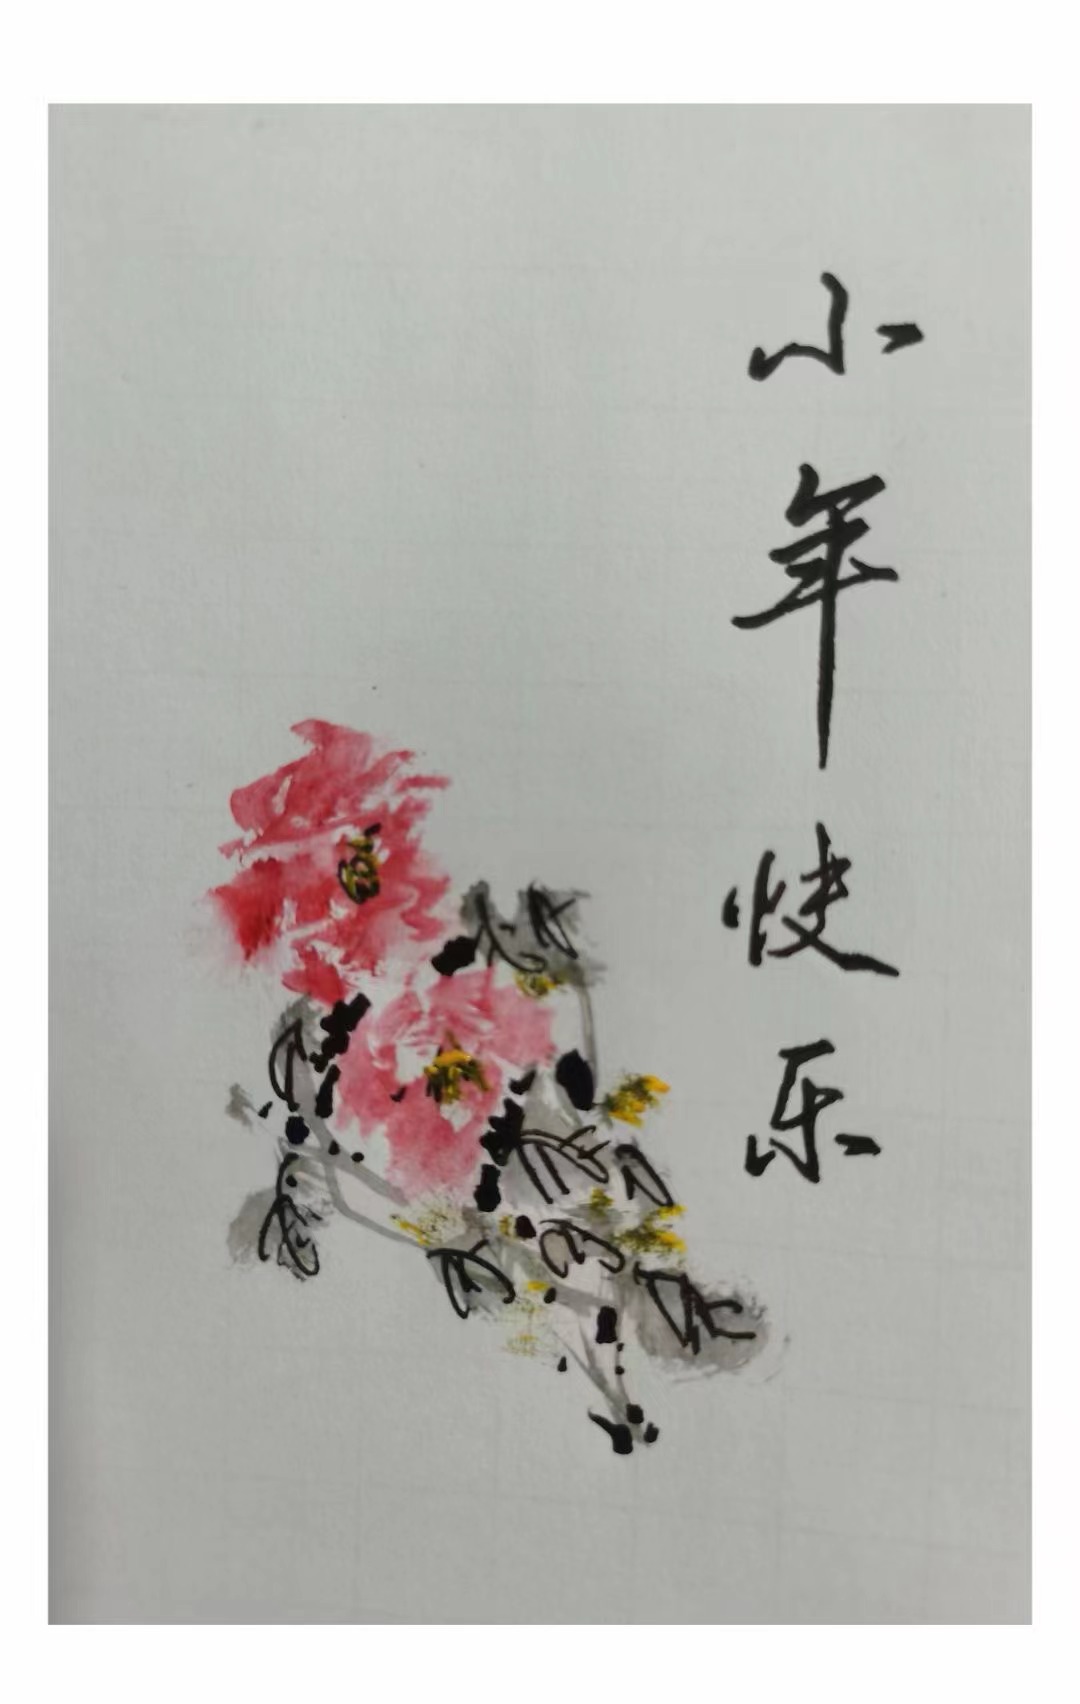 小年快乐